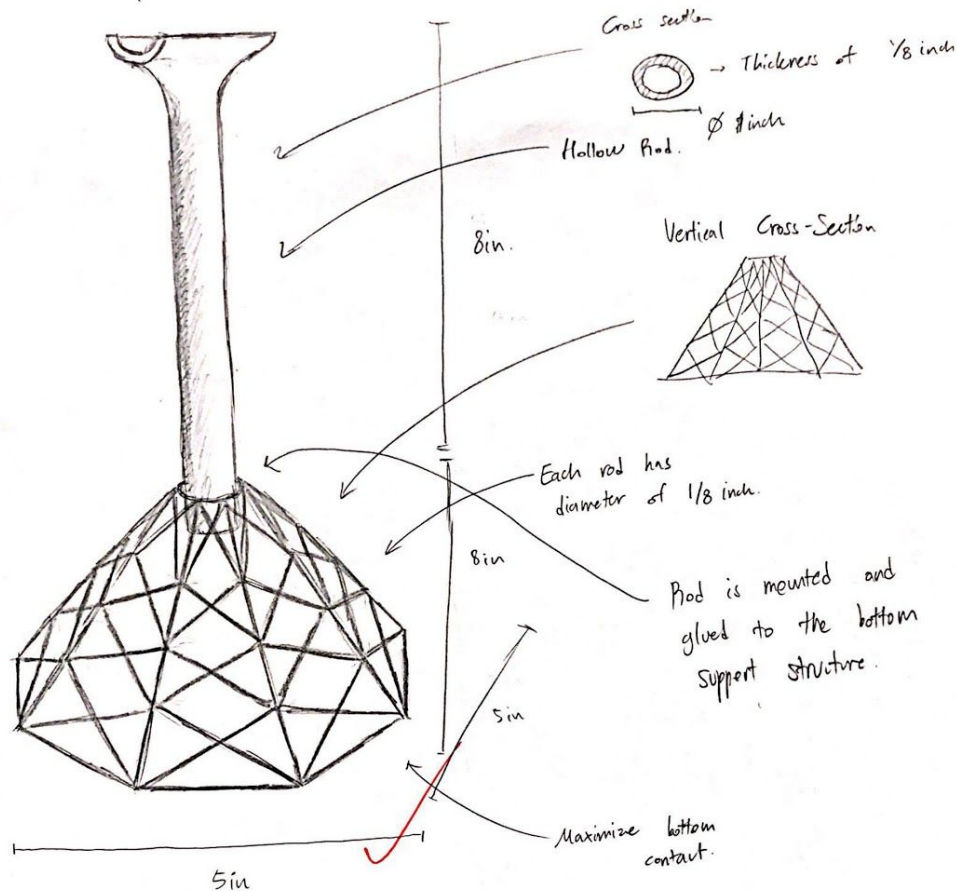 Cross section
→ Thickness of 1/8 inch
Ø 1inch
Hollow Rod.
8in.
Vertical Cross-Section
Each rod has
diameter of 1/8 inch.
8in
Rod is mounted and
glued to the bottom
support structure.
5in
Maximize bottom
contact.
5in